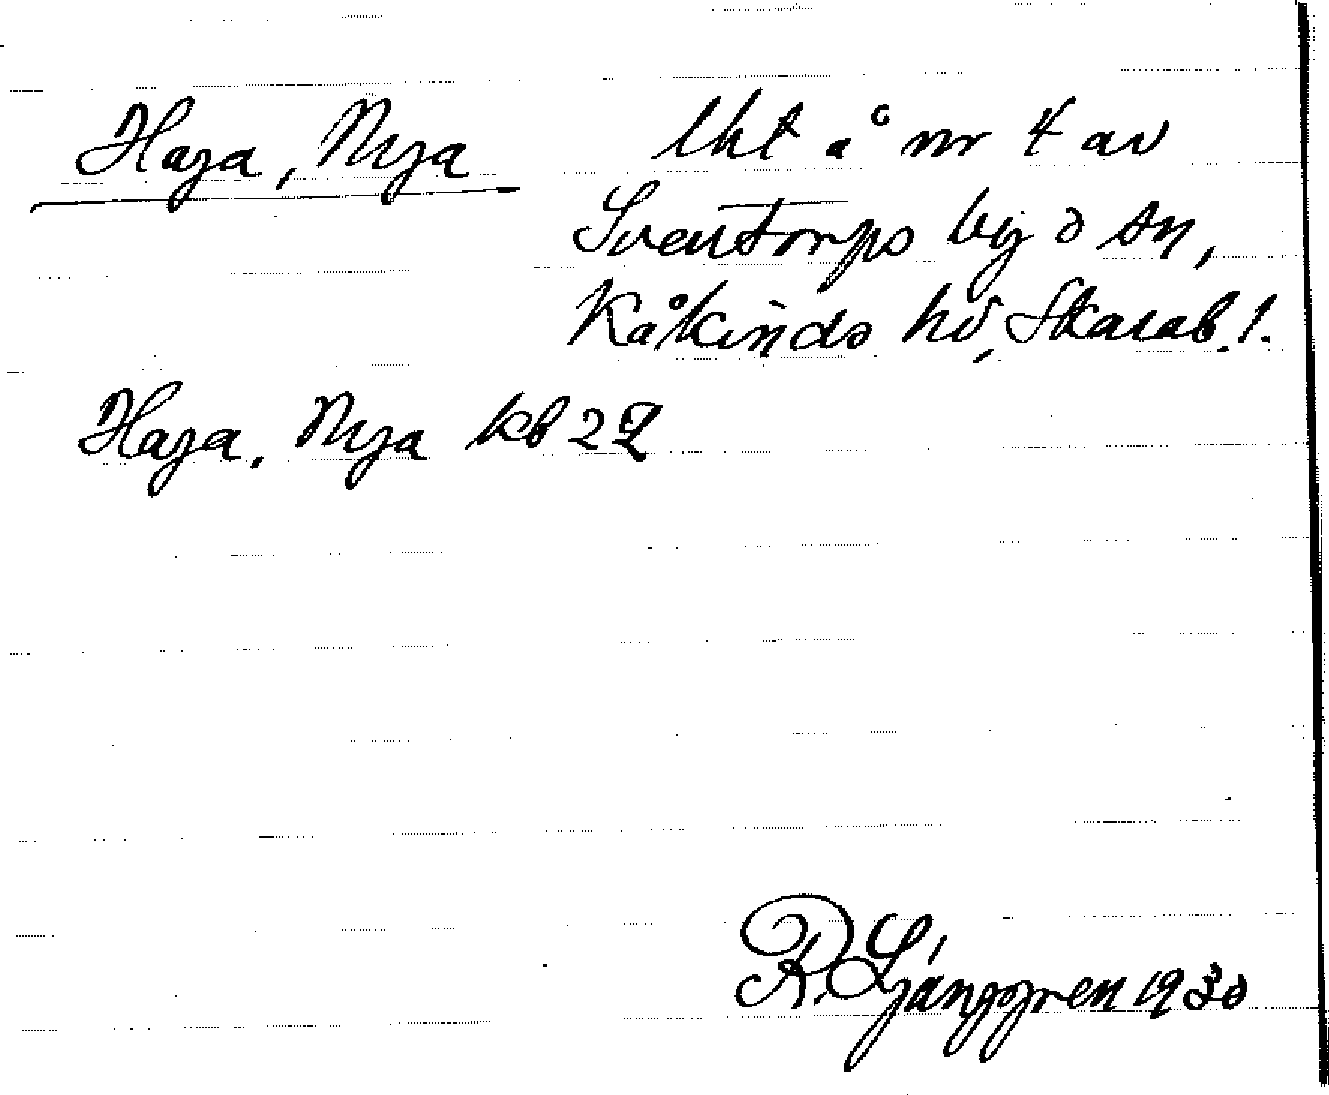 Haga, Nya lht å nr 4 av
Sventorps by o sn,
Kåkinds hd, Skarab. l.
Haga, Nya kb 22
R. Ljunggren 1930